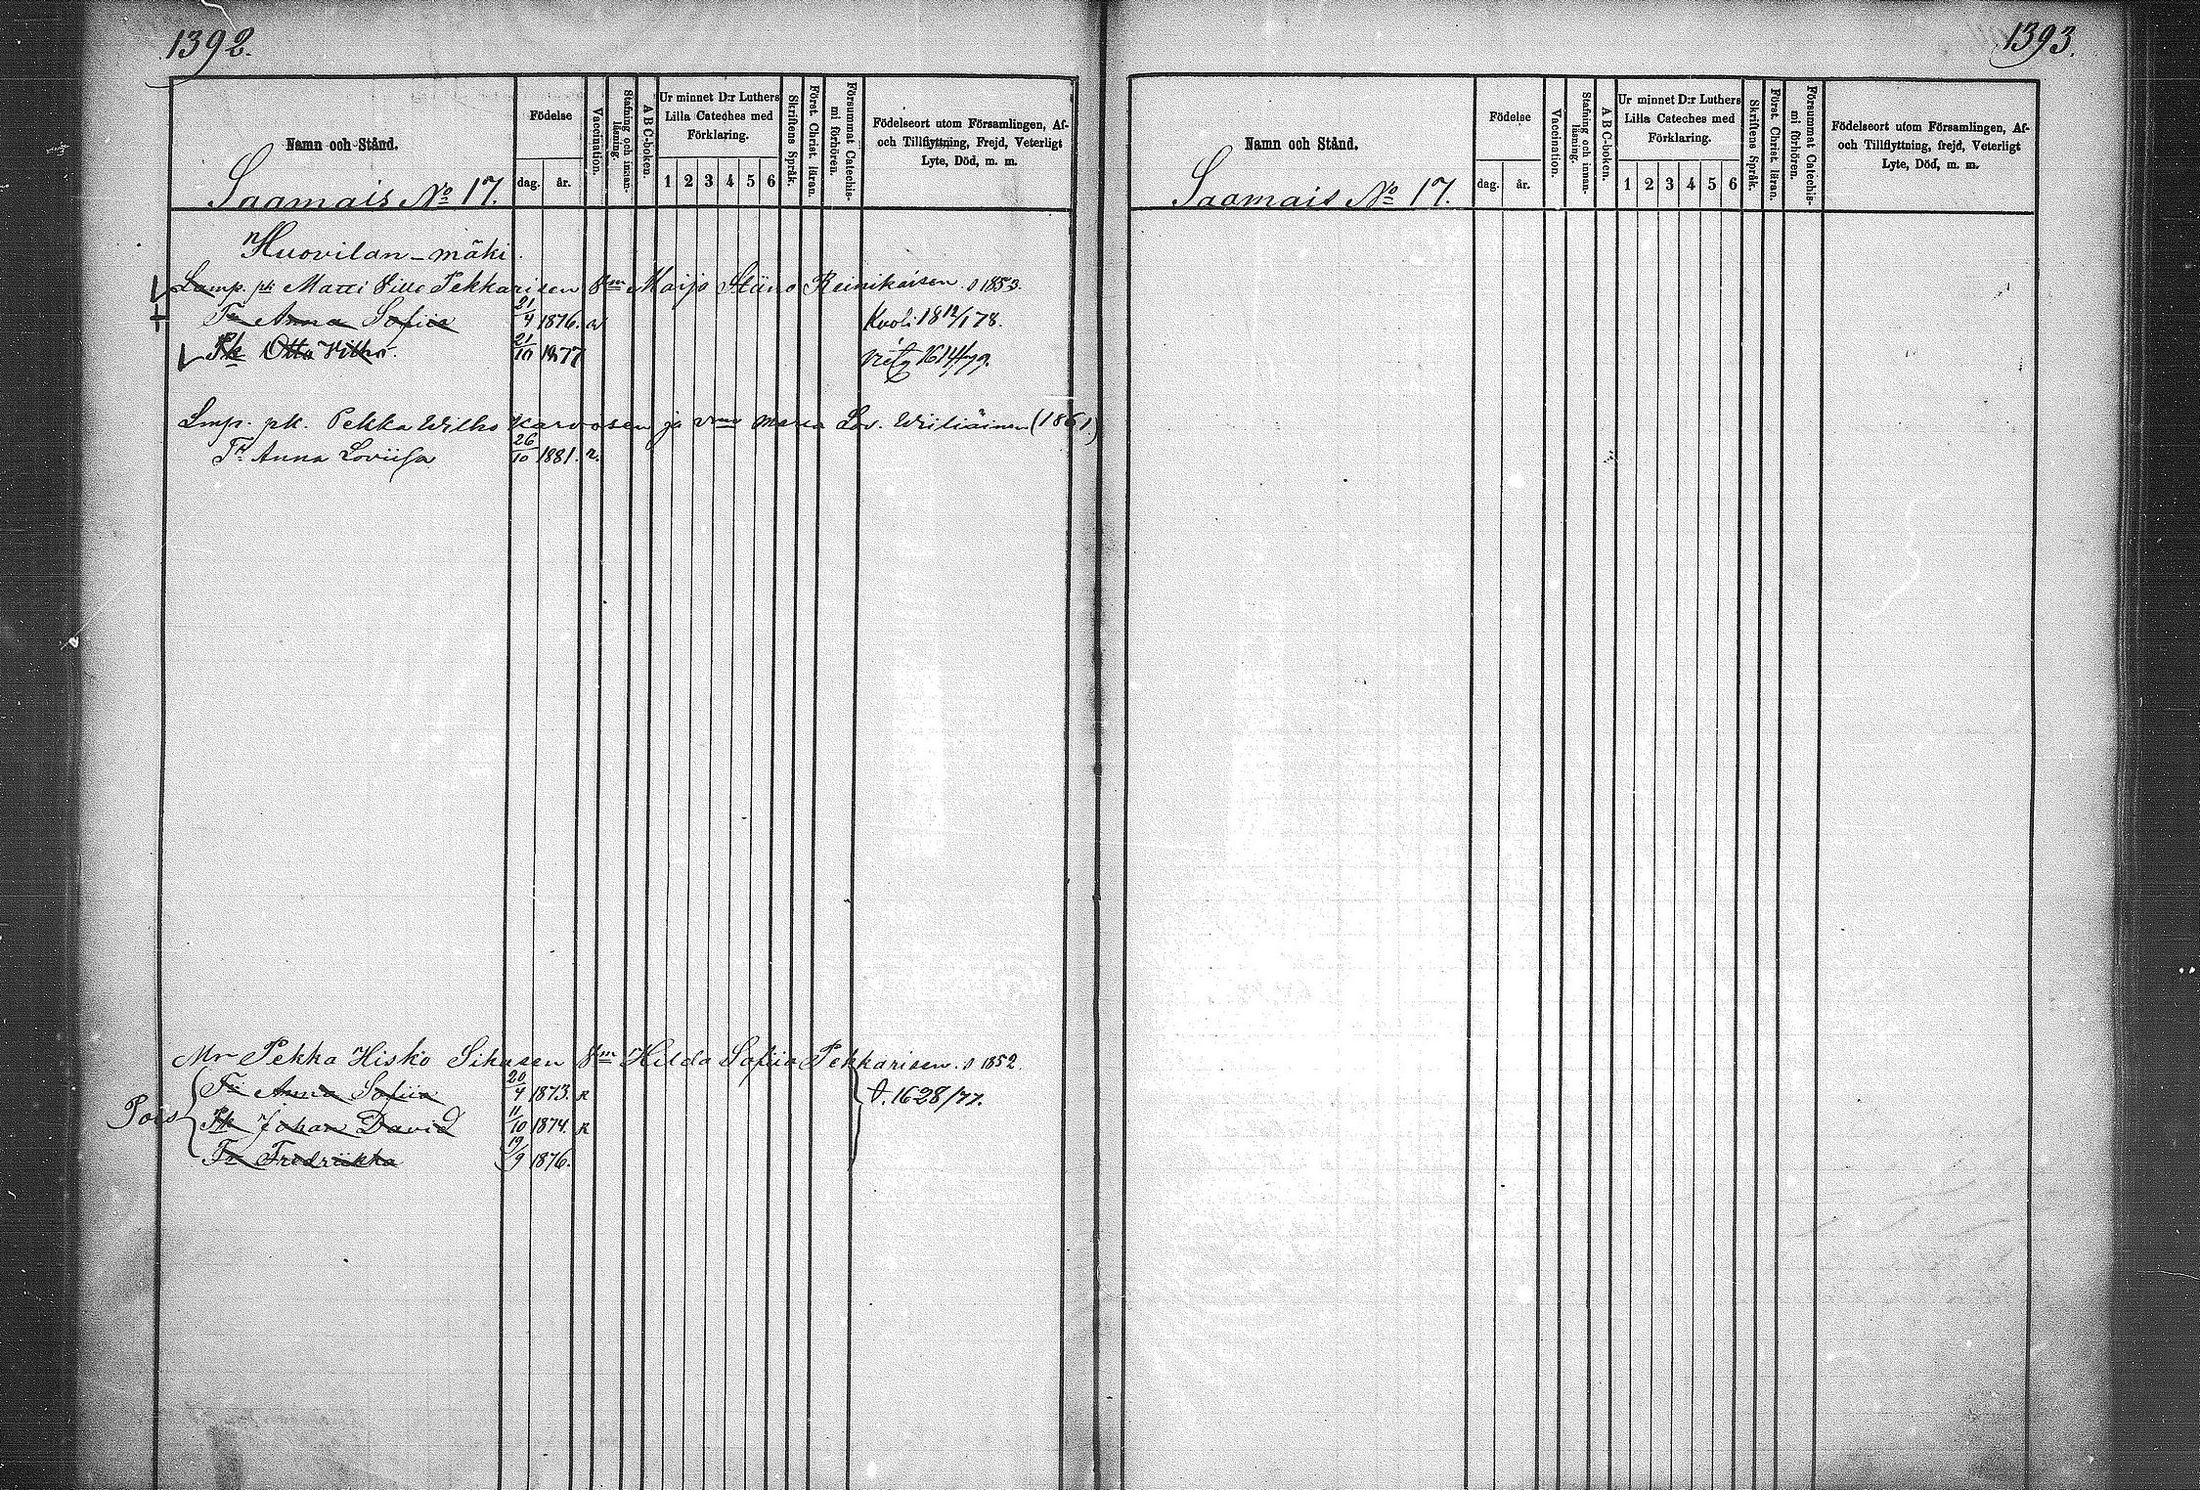 1392.
Namn och Stånd.
Födelse
dag.
år.
Vaccination.
Stafning och innan-
läsning.
A B C-boken.
Ur minnet D:r Luthers
Lilla Cateches med
Förklaring.
1 2 3 4 5 6
Skriftens Språk.
Först. Christ. läran.
Försummat Catechis-
mi förhören.
Födelseort utom Församlingen, Af-
och Tillflyttning, Frejd, Veterligt
Lyte, Död, m. m.
Saamais No 17.
Huovilan-mäki.
Lamp. pk Matti Ville Pekkarisen Vmn Maija Stiina Reinikaisen s 1853.
Tr Anna Sofiia 21/4 1876. Kuoli 18 12/1 78.
Pk Otto Vilho. 21/10 1877
Lmp. pk. Pekka Wilho Karvosen ja vmn Maria Lov. Wiiliäinen (1861)
Tr Anna Loviisa 26/10 1881. r.
Mr Pekka Hisko Sihvosen Vmn Hilda Sofiia Pekkarisen. s 1852.
Pois
Tr Anna Sofiia 20/4 1873. R
Pk Johan David 11/10 1874. R
Tr Fredriikka 19/9 1876.
S. 1628/77.
1393.
Namn och Stånd.
Födelse
dag.
år.
Vaccination.
Stafning och innan-
läsning.
A B C-boken.
Ur minnet D:r Luthers
Lilla Cateches med
Förklaring.
1 2 3 4 5 6
Skriftens Språk.
Först. Christ. läran.
Försummat Catechis-
mi förhören.
Födelseort utom Församlingen, Af-
och Tillflyttning, frejd, Veterligt
Lyte, Död, m. m.
Saamais No 17.